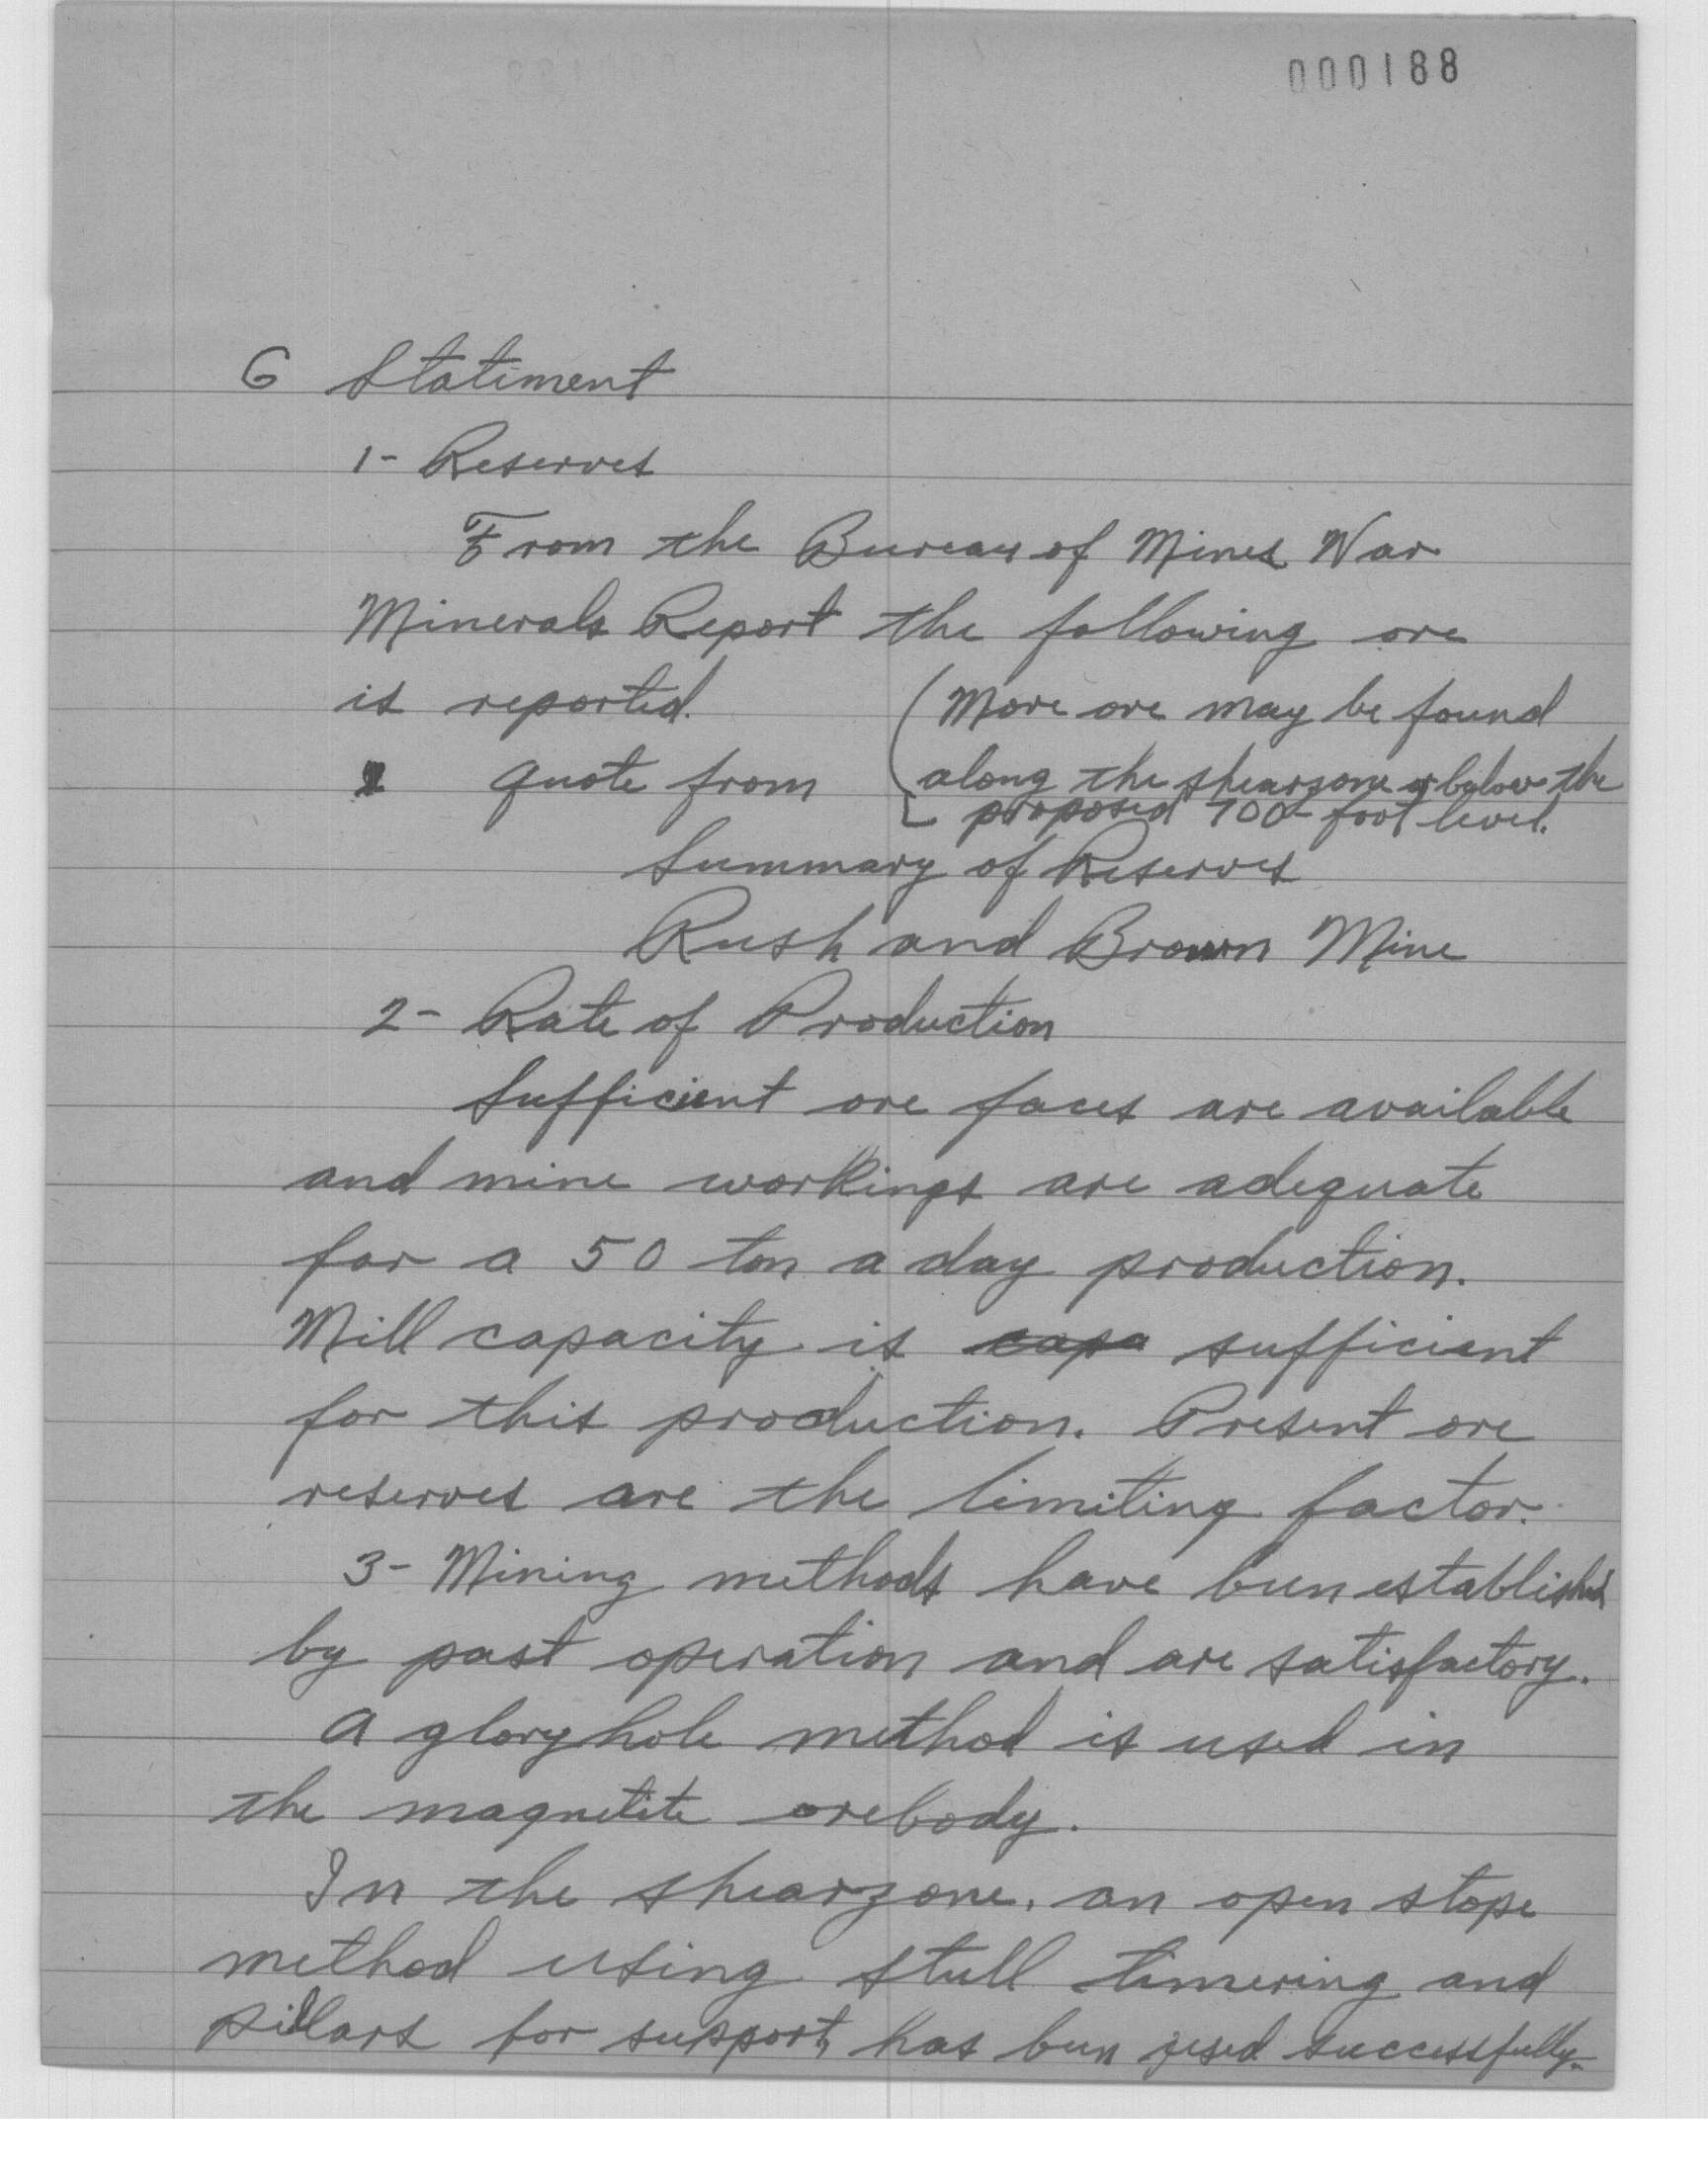 000188
G Statement
1- Reserves
From the Bureau of Mines War
Minerals Report the following ore
is reported.
(More ore may be found
quote from
along the shearzone or below the
proposed 700-foot level.
Summary of Reserves
Rush and Brown Mine
2- Rate of Production
Sufficient ore faces are available
and mine workings are adequate
for a 50 ton a day production.
Mill capacity is capa sufficient
for this production. Present ore
reserves are the limiting factor.
3- Mining methods have been established
by past operation and are satisfactory.
A glory hole method is used in
the magnetite orebody.
In the shearzone, an open stope
method using stull timering and
pillars for support, has been used successfully.